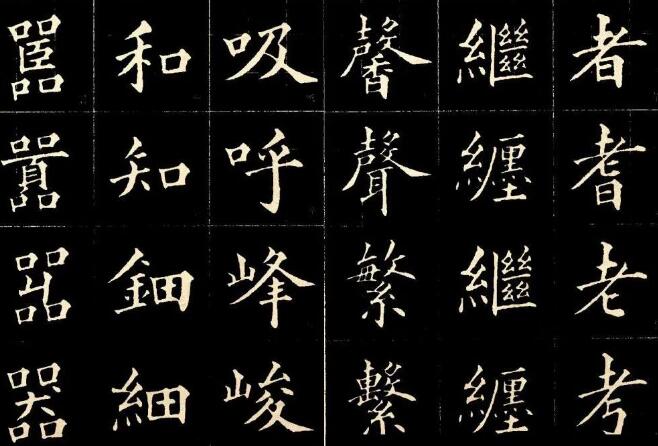 者耆老考
繼纏繼纏
馨聲繁繫
吸呼峰峻
和知鈿細
嚚囂嘂器